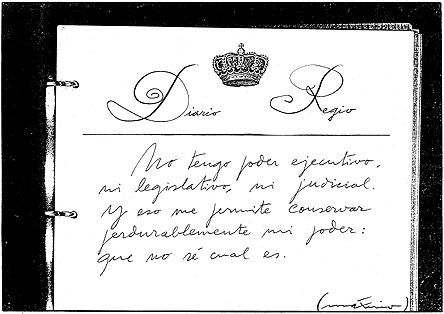 Diario Regio
No tengo poder ejecutivo,
ni legislativo, ni judicial.
Y eso me permite conservar
perdurablemente mi poder:
que no sé cual es.
(máximo)